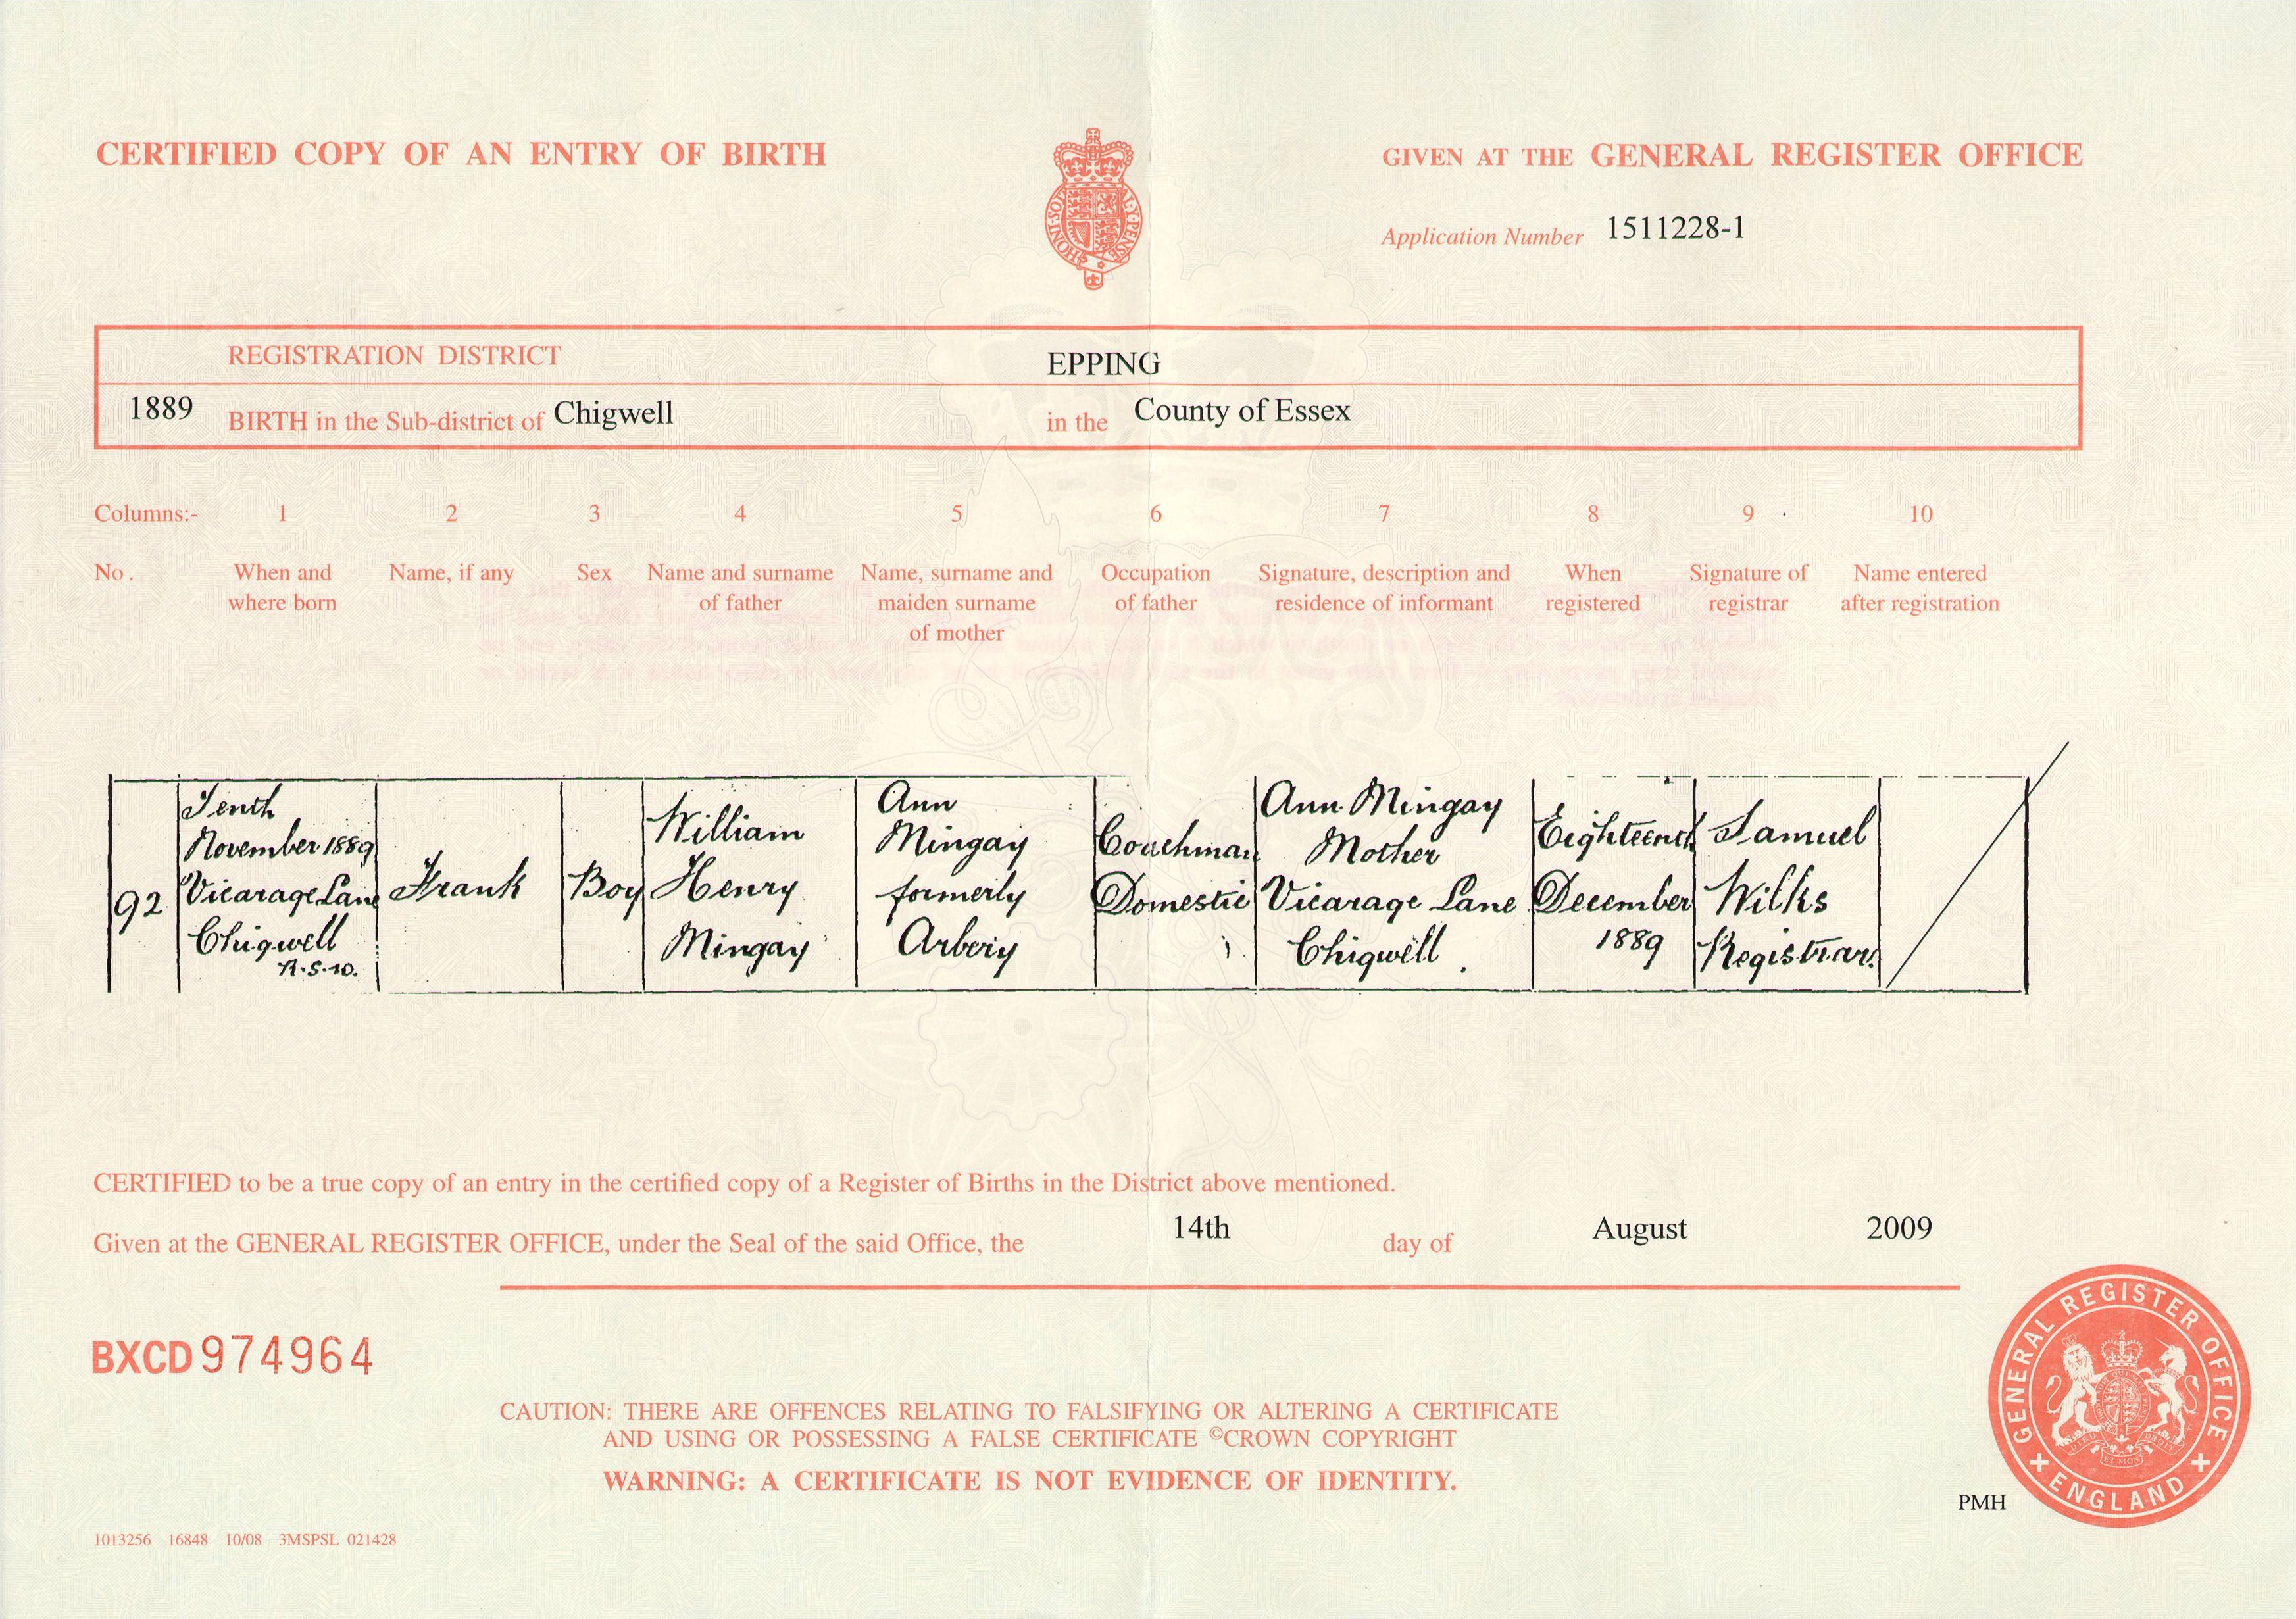 CERTIFIED COPY OF AN ENTRY OF BIRTH
GIVEN AT THE GENERAL REGISTER OFFICE
Application Number 1511228-1
REGISTRATION DISTRICT EPPING
1889 BIRTH in the Sub-district of Chigwell in the County of Essex
Columns:- 1 2 3 4 5 6 7 8 9 10
No. When and where born Name, if any Sex Name and surname of father Name, surname and maiden surname of mother Occupation of father Signature, description and residence of informant When registered Signature of registrar Name entered after registration
92
Tenth
November 1889
Vicarage Lane
Chigwell
R.S.D.
Frank
Boy
William
Henry
Mingay
Ann
Mingay
formerly
Coachman
Domestic
Ann Mingay
Mother
Vicarage Lane
Chigwell
Eighteenth
December
1889
Samuel
Wilks
Registrar.
CERTIFIED to be a true copy of an entry in the certified copy of a Register of Births in the District above mentioned.
Given at the GENERAL REGISTER OFFICE, under the Seal of the said Office, the 14th day of August 2009
BXCD 974964
CAUTION: THERE ARE OFFENCES RELATING TO FALSIFYING OR ALTERING A CERTIFICATE
AND USING OR POSSESSING A FALSE CERTIFICATE ©CROWN COPYRIGHT
WARNING: A CERTIFICATE IS NOT EVIDENCE OF IDENTITY.
GENERAL REGISTER OFFICE
ENGLAND
PMH
1013256 16848 10/08 3MSPSL 021428